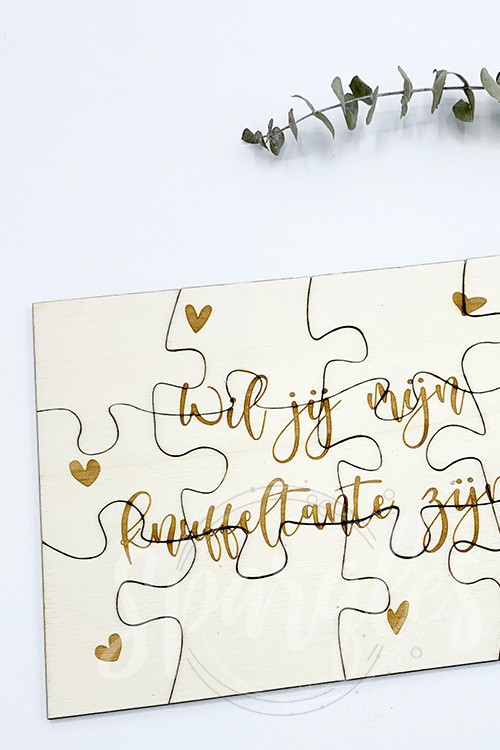 Wil jij mijn
knuffeltante zijn
Sparkles